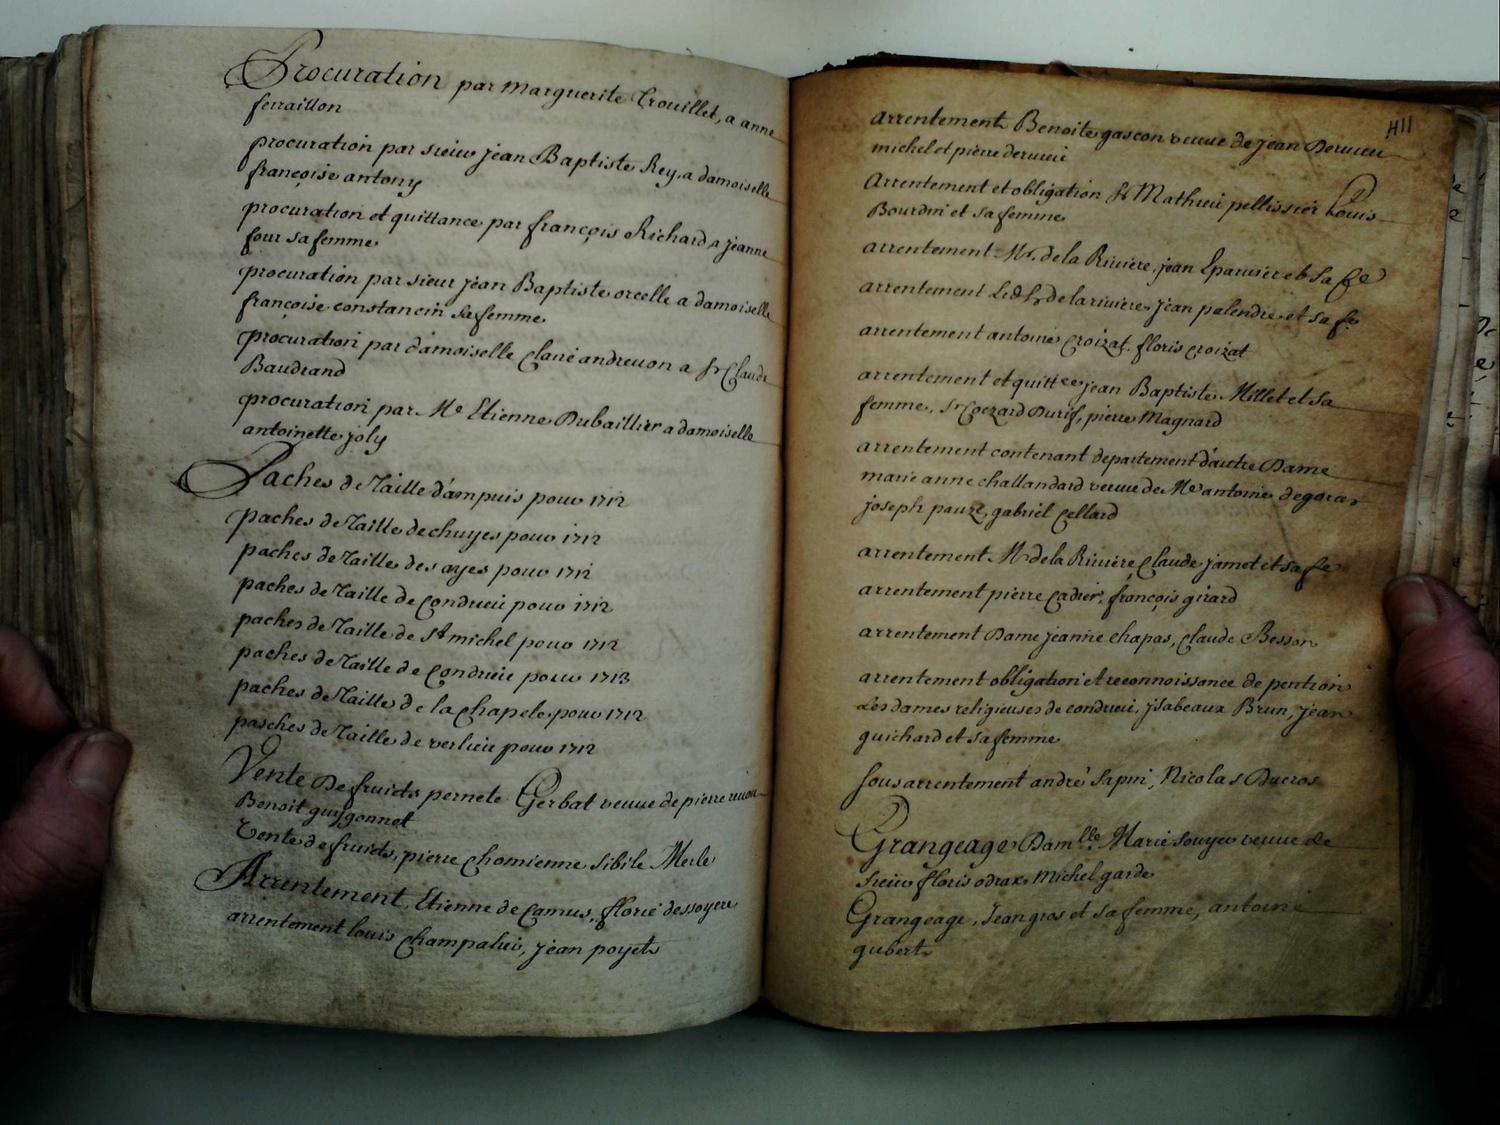 Procuration par marguerite Trouillet, a anne
ferraillon
procuration par sieur jean Baptiste Rey, a damoiselle
françoise antony
procuration et quittance par françois Richard a jeanne
four sa femme
procuration par sieur jean Baptiste orcelle a damoiselle
françoise constancin sa femme
procuration par damoiselle Claire andrevon a Sr Claude
Baudrand
procuration par Me Etienne Dubaillier a damoiselle
antoinette joly
Paches de Taille d'ampuis pour 1712
paches de Taille de chuyes pour 1712
paches de Taille des ayes pour 1712
paches de Taille de Condrieu pour 1712
paches de Taille de St michel pour 1712
paches de Taille de Condrieu pour 1713
paches de Taille de la Chapele pour 1712
pasches de Taille de verlieu pour 1712
Vente De fruicts pernete Gerbat veuve de pierre
Benoit guigonnet
Vente de fruicts, pierre Chomienne sibile Merle
Arrentement, Etienne de Camus, florie dessoyere
arrentement louis Champalier, jean poyet
411
arrentement Benoite gascon veuve de jean Dervieu
michel et pierre dervieu
Arrentement et obligation Sr Mathieu pellissier Louis
Bourdin et sa femme
arrentement Mr de la Riviere, jean Eparvier et sa fe
arrentement Led Sr de la riviere, jean palendre et sa fe
arrentement antoine Croizat, floris Croizat
arrentement et quittce jean Baptiste Millet et sa
femme, Sr Cæzard Durif, pierre Magnard
arrentement contenant departement d'autre Dame
marie anne challandard veuve de Me antoine degoras
joseph pauze, gabriel Cellard
arrentement Mr de la Riviere Claude jamet et sa fe
arrentement pierre Cadier, françois girard
arrentement Dame jeanne chapas, Claude Besson
arrentement obligation et reconnoissance de pention
Les dames religieuses de condrieu, jsabeaux Brun, jean
guichard et sa femme
sous arrentement andré sapin, Nicolas Ducros
Grangeage Damlle Marie souyer veuve de
sieur floris odrax Michel garde
Grangeage, Jean gros et sa femme, antoine
gubert